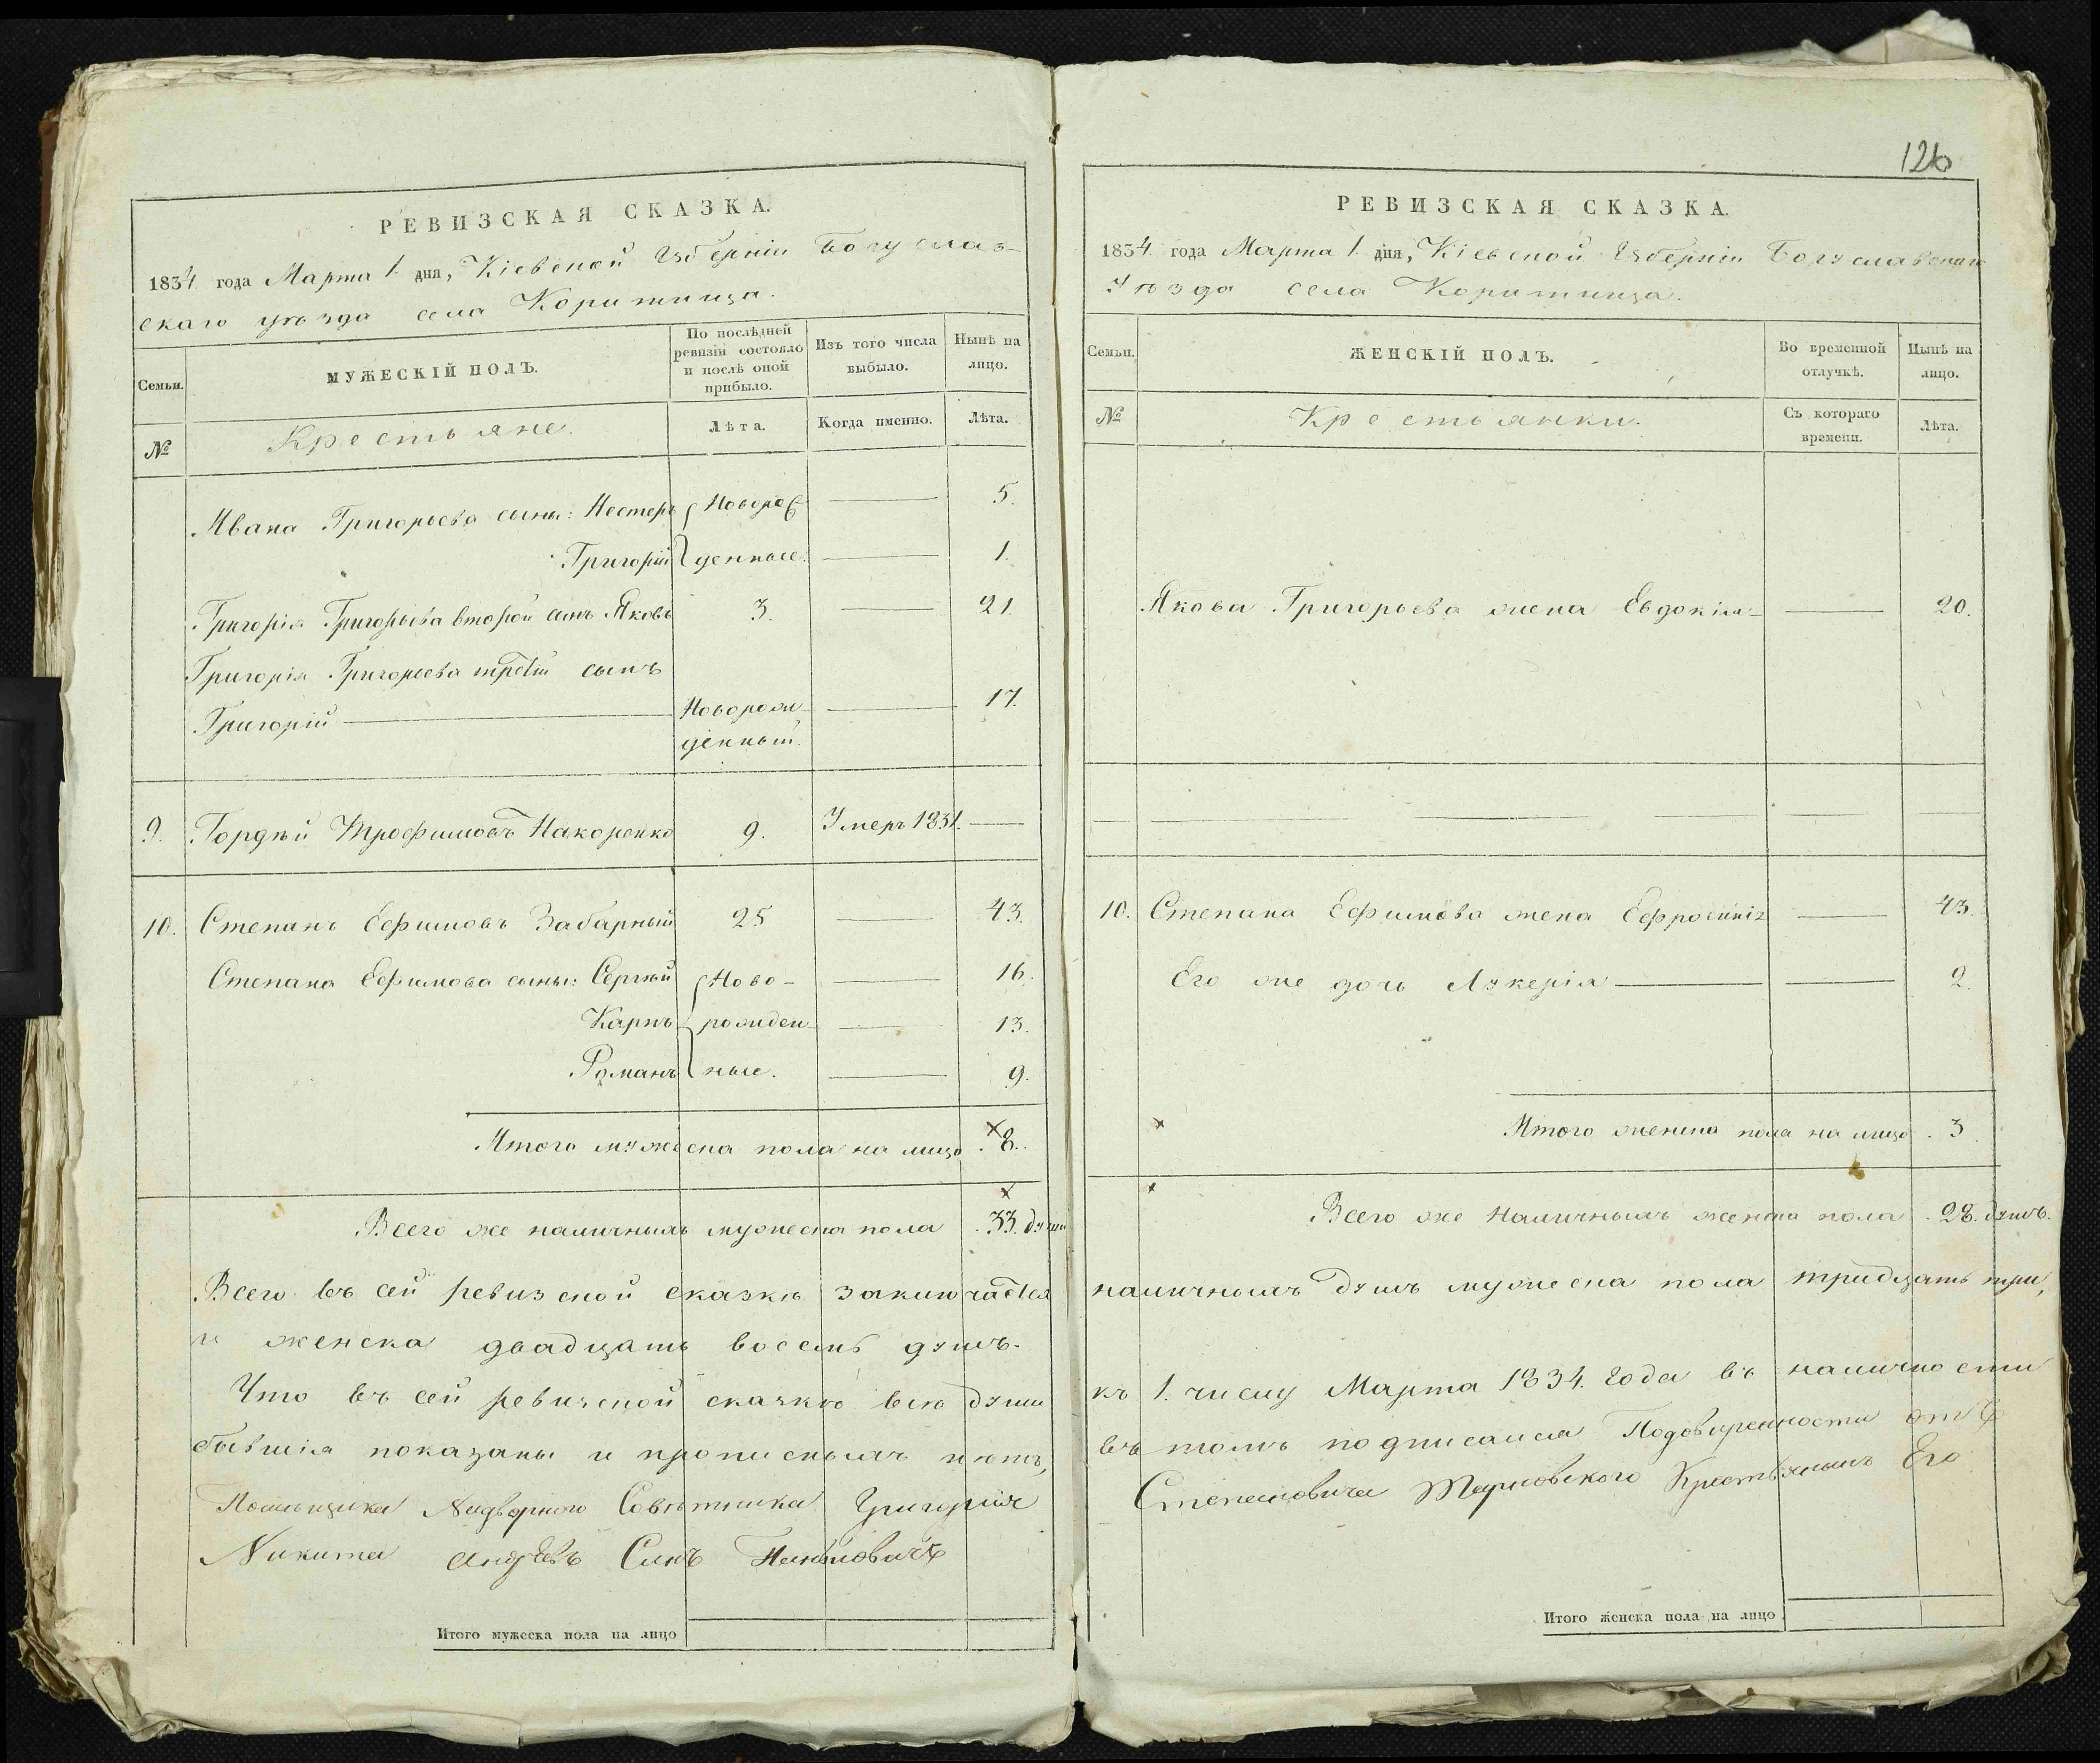 РЕВИЗСКАЯ СКАЗКА.
1834 года Марта 1. дня, Кіевской Губерніи Богуслав-
скаго уѣзда села Коритища.
Семьи.
МУЖЕСКІЙ ПОЛЪ.
По послѣдней ревизіи состояло и послѣ оной прибыло.
Изъ того числа выбыло.
Нынѣ на лицо.
№
Крестьяне.
Лѣта.
Когда именно.
Лѣта.
Ивана Григорьева сыны: Нестеръ Новорож 5.
Григорій денные. 1.
Григорія Григорьева второй сынъ Яковъ 3. 21.
Григорія Григорьева третій сынъ
Григорій Новорож- 17.
денный.
9. Гордѣй Трофимовъ Накоренко 9. Умеръ 1831.
10. Степанъ Ефимовъ Забарный 25 43.
Степана Ефимова сыны: Сергѣй Ново- 16.
Карпъ рожден- 13.
Романъ ные. 9.
Итого мужеска пола на лицо 8.
Всего же наличныхъ мужеска пола 33. души
Всего въ сей ревизской сказкѣ заключается
и женска двадцать восемь душъ.
Что въ сей ревизской сказкѣ всѣ души
бывшія показаны и прописныхъ нѣтъ,
Помѣщика Надворного Совѣтника Григорія
Никита Андреевъ Синъ
Итого мужеска пола на лицо
126
РЕВИЗСКАЯ СКАЗКА.
1834 года Марта 1. дня, Кіевской Губерніи Богуславскаго
уѣзда села Коритища.
Семьи.
ЖЕНСКІЙ ПОЛЪ.
Во временной отлучкѣ.
Нынѣ на лицо.
№
Крестьянки.
Съ котораго времени.
Лѣта.
Якова Григорьева жена Евдокія 20.
10. Степана Ефимова жена Ефросинія 43.
Его же дочь Лукерія 2.
Итого женска пола на лицо 3.
Всего же наличныхъ женска пола 28. душъ.
наличныхъ душъ мужеска пола тридцать три,
къ 1. числу Марта 1834. Года въ наличности
въ томъ подписался Подовѣренности отъ
Степановича Тарновского Крестьянинъ Его
Итого женска пола на лицо